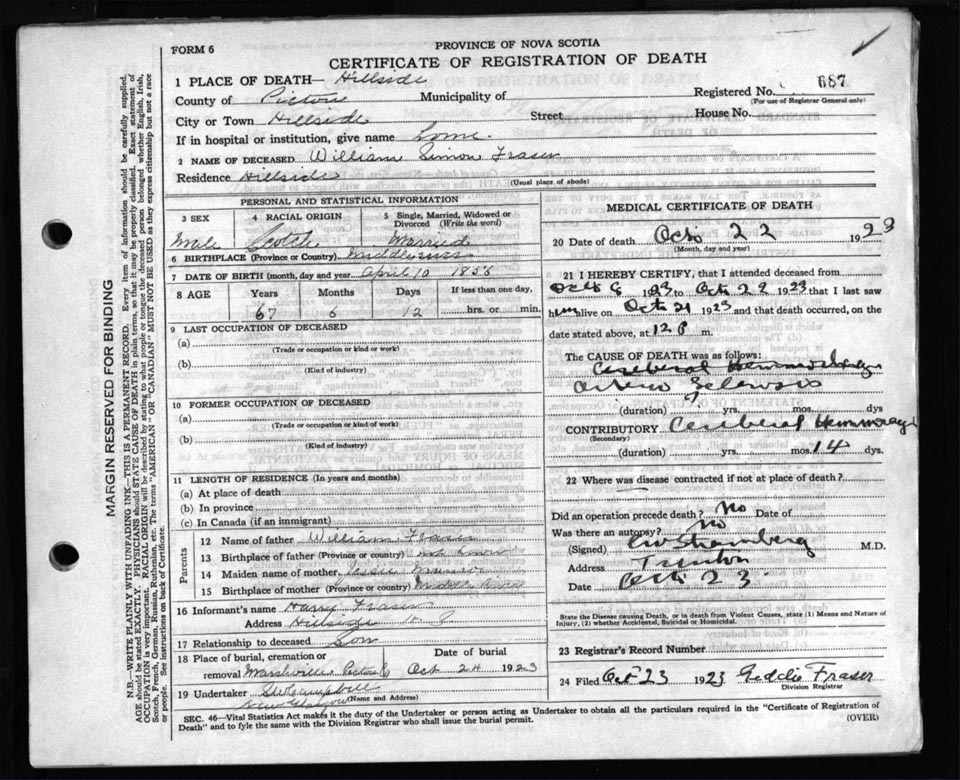 PROVINCE OF NOVA SCOTIA
FORM 6
CERTIFICATE OF REGISTRATION OF DEATH
1 PLACE OF DEATH— Hillside
Registered No. 687
(For use of Registrar General only)
County of Pictou Municipality of
City or Town Hillside Street House No.
If in hospital or institution, give name
2 NAME OF DECEASED William Simon Fraser
Residence Hillside
(Usual place of abode)
PERSONAL AND STATISTICAL INFORMATION
3 SEX 4 RACIAL ORIGIN 5 Single, Married, Widowed or Divorced (Write the word)
Male Scotch Married
6 BIRTHPLACE (Province or Country)
7 DATE OF BIRTH (month, day and year April 10 1856
8 AGE Years Months Days If less than one day,
67 6 12 hrs. or min.
9 LAST OCCUPATION OF DECEASED
(a)
(Trade or occupation or kind or work)
(b)
(Kind of industry)
10 FORMER OCCUPATION OF DECEASED
(a)
(Trade or occupation or kind of work)
(b)
(Kind of industry)
11 LENGTH OF RESIDENCE (In years and months)
(a) At place of death
(b) In province
(c) In Canada (if an immigrant)
Parents
12 Name of father William Fraser
13 Birthplace of father (Province or country) not known
14 Maiden name of mother
15 Birthplace of mother (Province or country) Middle River
16 Informant's name Harry Fraser
Address Hillside
17 Relationship to deceased Son
18 Place of burial, cremation or
removal Marshville Pictou Co Oct 24 1923
19 Undertaker Campbell
New Glasgow (Name and Address)
MEDICAL CERTIFICATE OF DEATH
20 Date of death Oct 22 1923
(Month, day and year)
21 I HEREBY CERTIFY, that I attended deceased from
Oct 8 1923 to Oct 22 1923 that I last saw
him alive on Oct 21 1923 and that death occurred, on the
date stated above, at 12 P m.
The CAUSE OF DEATH was as follows:
Cerebral Hemmorhage
Arterio Sclerosis
(duration) ? yrs. mos. dys
CONTRIBUTORY Cerebral Hemmorage
(Secondary)
(duration) yrs. mos. 14 dys.
22 Where was disease contracted if not at place of death?
Did an operation precede death? No Date of
Was there an autopsy? No
(Signed) M.D.
Address Trenton
Date Oct 23
State the Disease causing Death, or in death from Violent Causes, state (1) Means and Nature of
Injury, (2) whether Accidental, Suicidal or Homicidal.
23 Registrar's Record Number
24 Filed Oct 23 1923 Geddie Fraser
Division Registrar
SEC. 46—Vital Statistics Act makes it the duty of the Undertaker or person acting as Undertaker to obtain all the particulars required in the "Certificate of Registration of
Death" and to fyle the same with the Division Registrar who shall issue the burial permit.
(OVER)
MARGIN RESERVED FOR BINDING
N.B.—WRITE PLAINLY WITH UNFADING INK—THIS IS A PERMANENT RECORD. Every item of information should be carefully supplied.
AGE should be stated EXACTLY. PHYSICIANS should STATE CAUSE OF DEATH in plain terms, so that it may be properly classified. Exact statement of
OCCUPATION is very important. RACIAL ORIGIN will be described by stating to what people or tongue the deceased person belonged whether English, Irish,
Scotch, French, German, Russian, Ruthenian, etc. The terms "AMERICAN" OR "CANADIAN" MUST NOT BE USED as they express citizenship but not a race
or people. See instructions on back of Certificate.